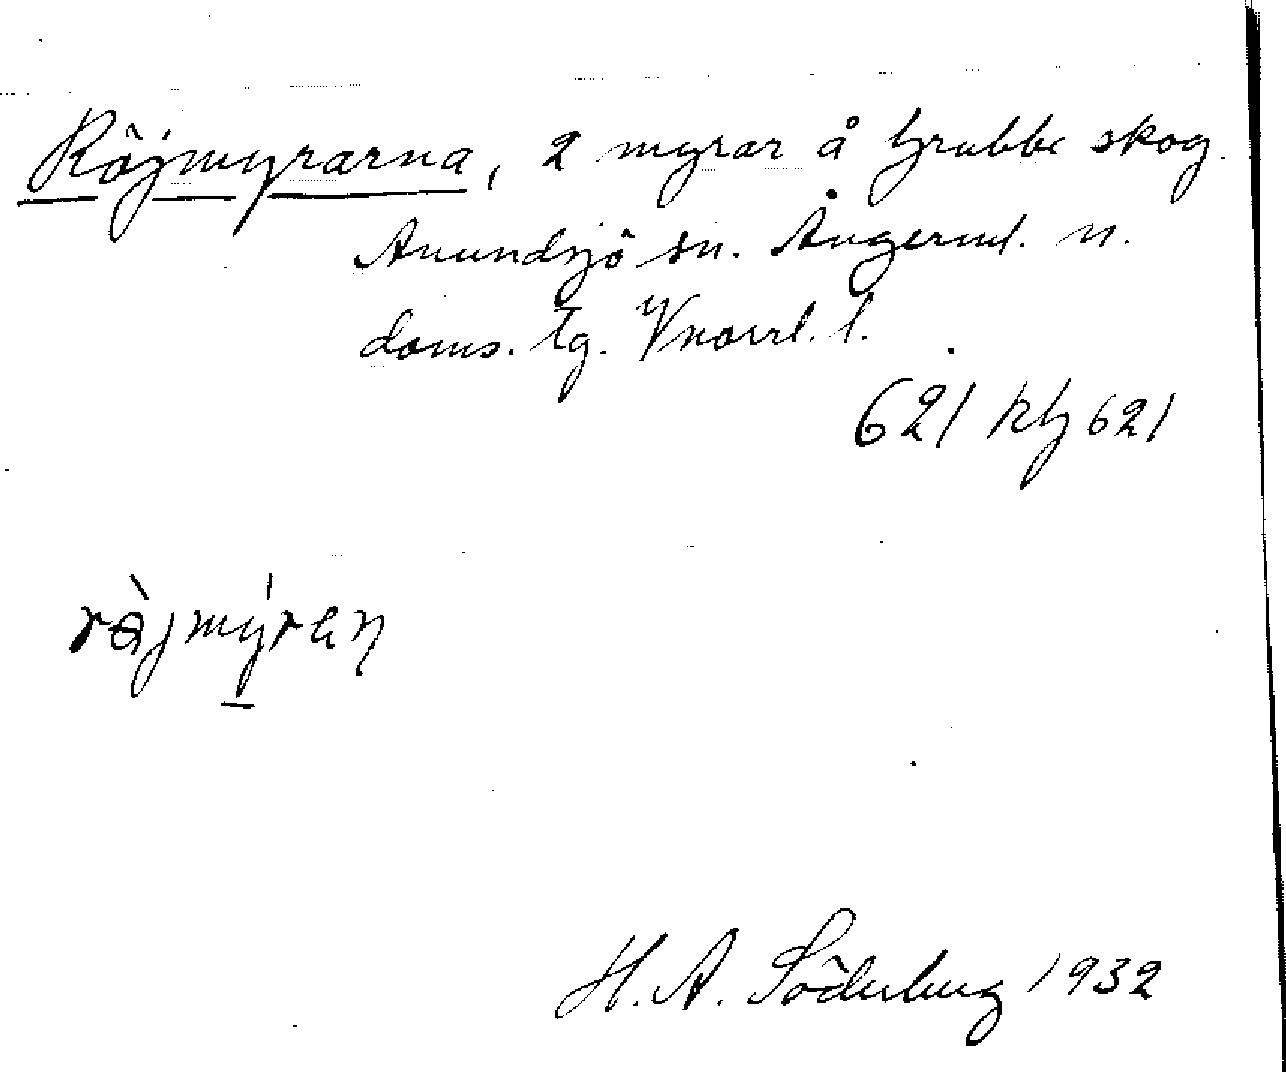 Röjmyrarna, 2 myrar å Grubbe skog.
Anundsjö sn. Ångerml. n.
doms. tg. Vnorrl. l.
621 kg 621
H. A. Söderberg 1932